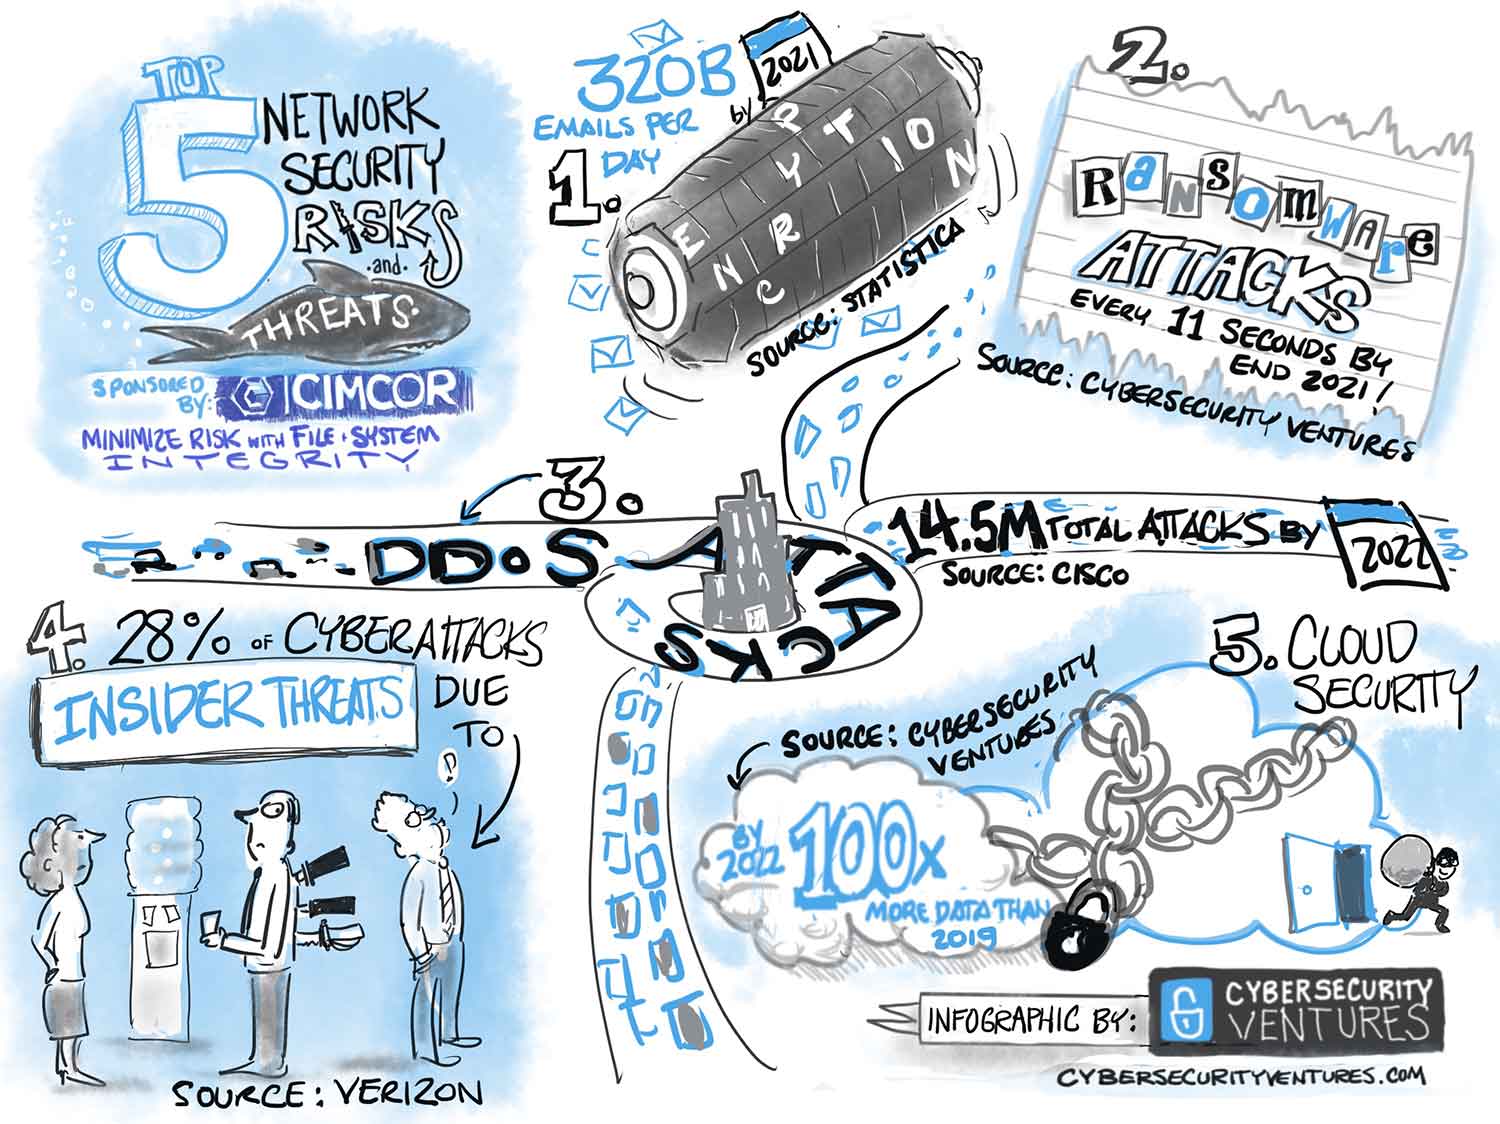 TOP
5
NETWORK
SECURITY
RISKS
and
THREATS
SPONSORED
BY: CIMCOR
MINIMIZE RISK WITH FILE + SYSTEM
INTEGRITY
1.
320B
EMAILS PER
DAY
by
2021
ENCRYPTION
SOURCE: STATISTICA
2.
RaNSomWAre
ATTACKS
EVERY 11 SECONDS BY
END 2021!
SOURCE: CYBERSECURITY VENTURES
3.
DDoS ATTACKS
14.5M TOTAL ATTACKS BY
2022
SOURCE: CISCO
4. 28% OF CYBERATTACKS
DUE
TO
INSIDER THREATS
!
SOURCE: VERIZON
5. CLOUD
SECURITY
SOURCE: CYBERSECURITY
VENTURES
BY
2022
100x
MORE DATA THAN
2019
INFOGRAPHIC BY:
CYBERSECURITY
VENTURES
CYBERSECURITYVENTURES.COM